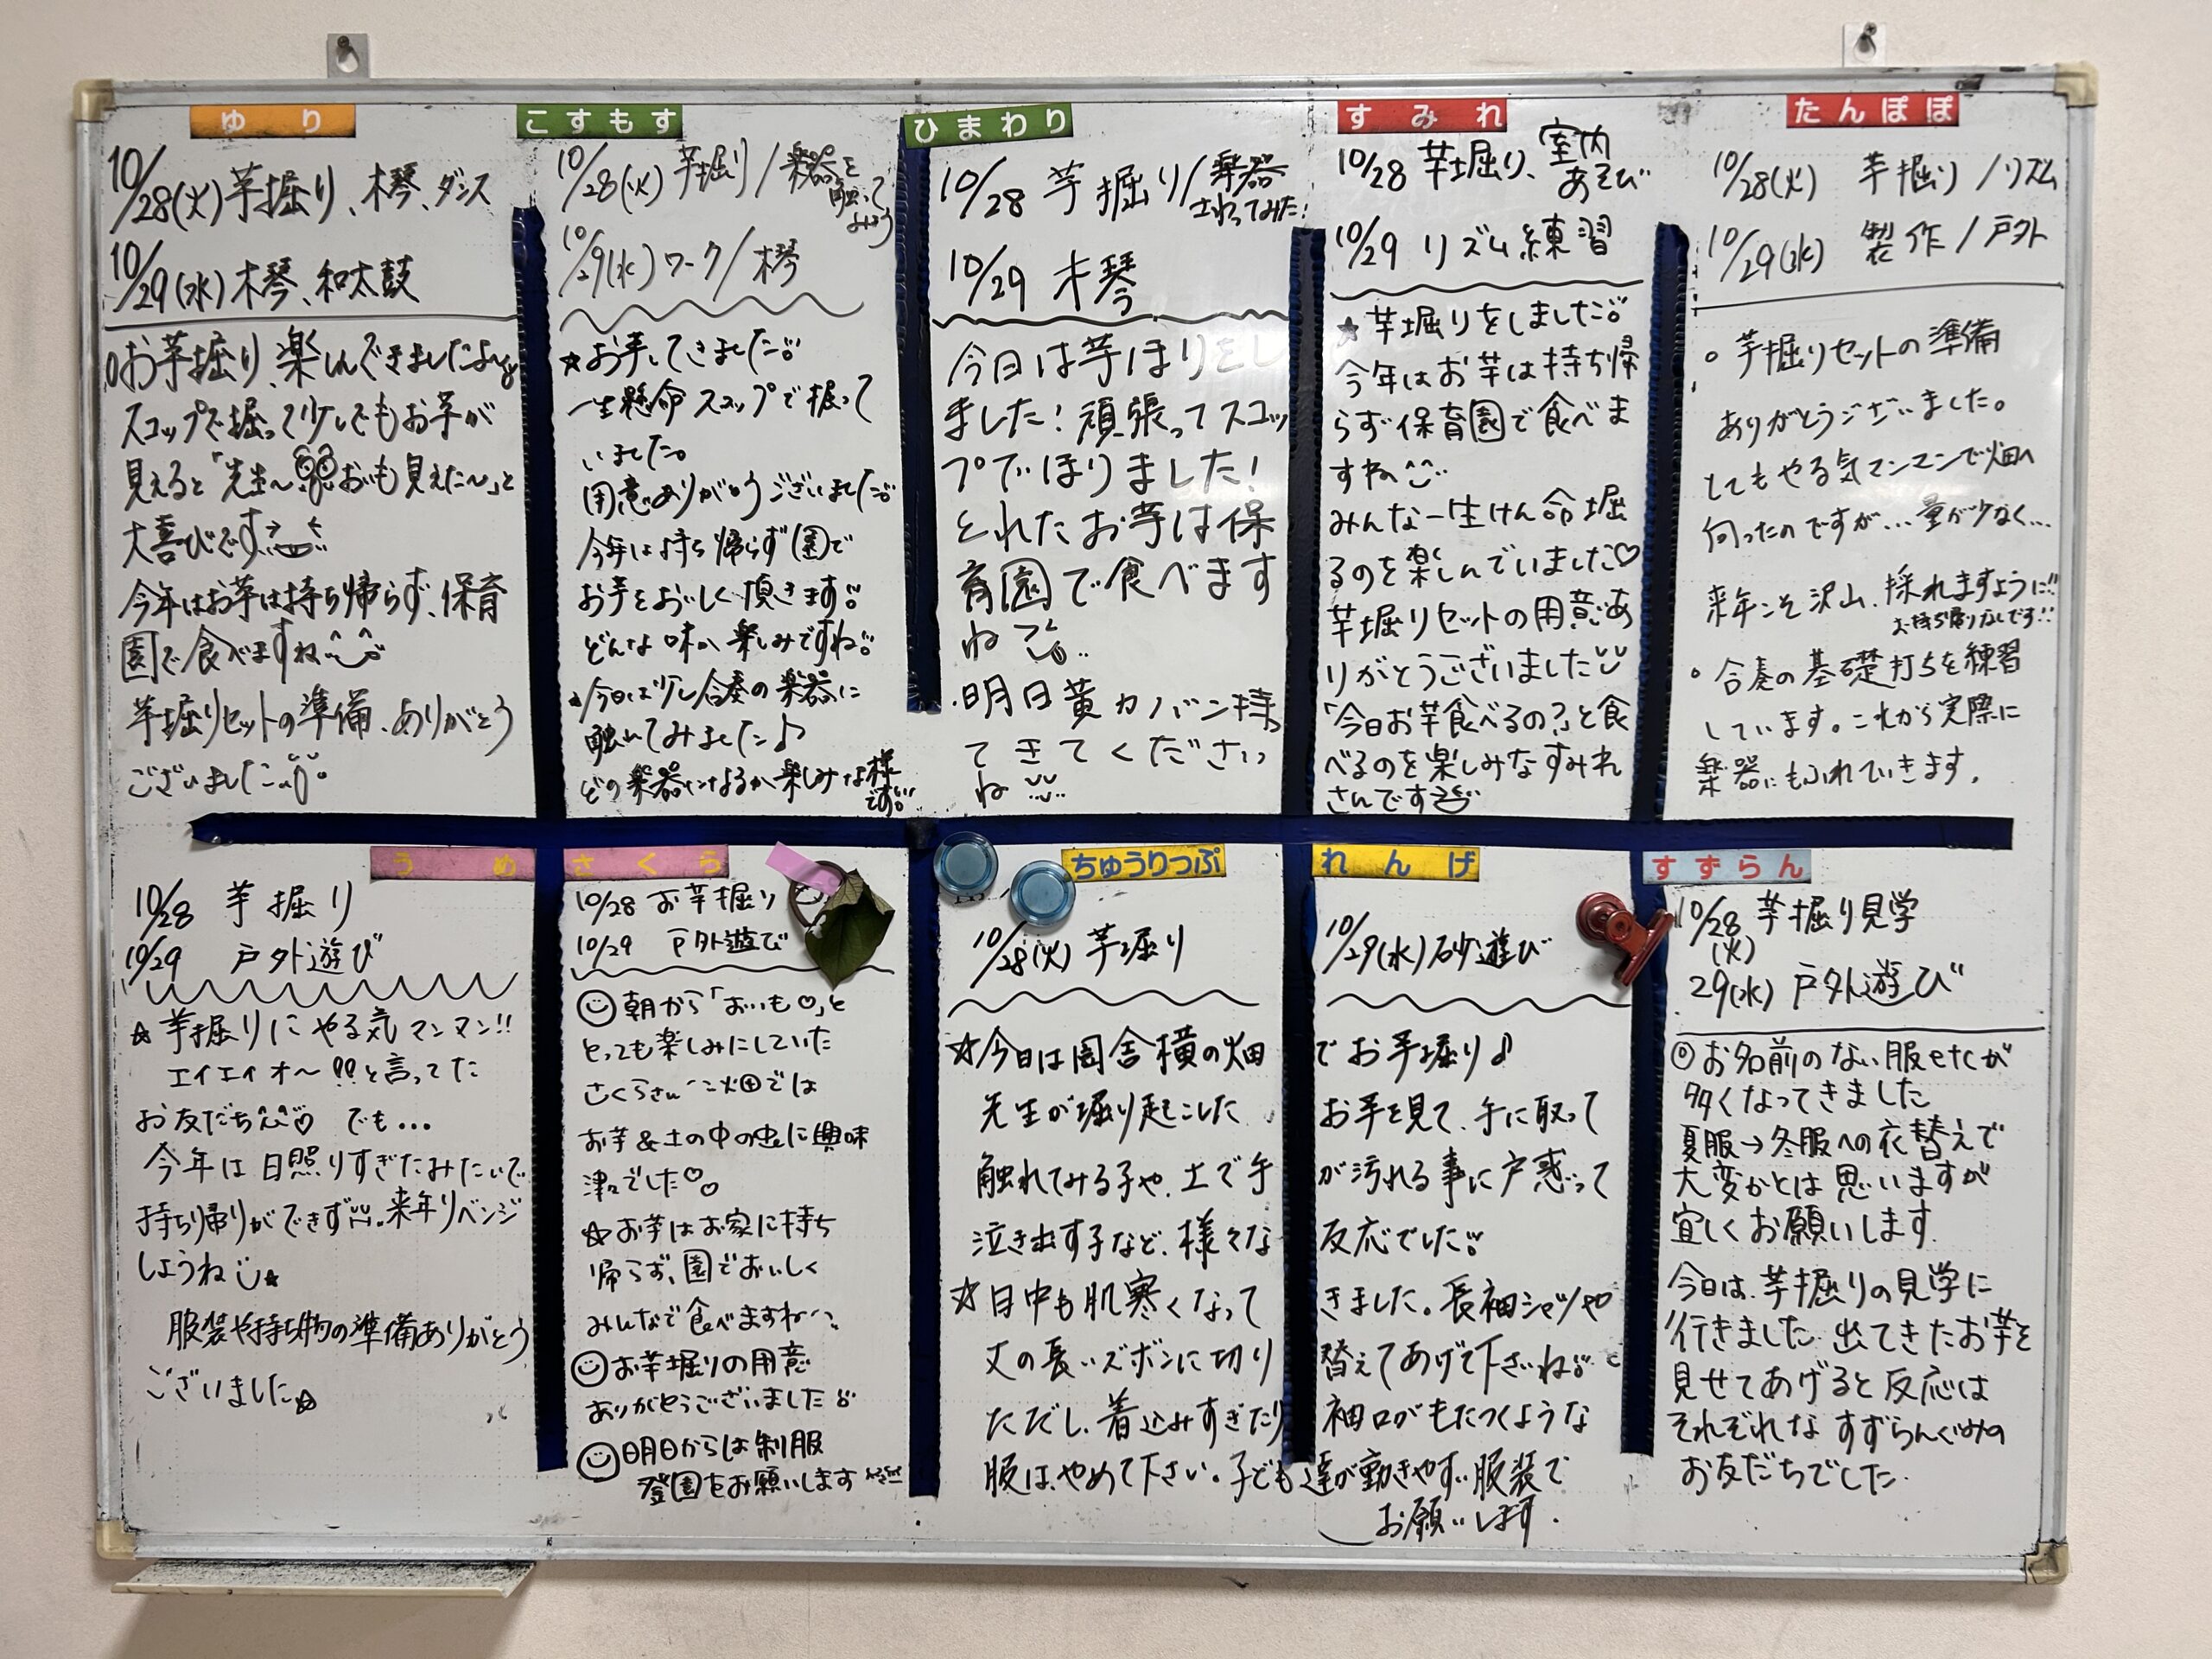 ゆり
10/28(火)芋掘り、木琴、ダンス
10/29(水)木琴、和太鼓
お芋掘り、楽しんできましたよ〜
スコップで掘って少しでもお芋が
見えると「先生〜おいも見えた〜」と
大喜びです
今年はお芋は持ち帰らず、保育
園で食べますね
芋掘りセットの準備、ありがとう
ございました
こすもす
10/28(火)芋掘り/楽器を
触って
みよう
10/29(水)ワーク/木琴
☆お芋してきました
一生懸命スコップで掘って
いました。
用意ありがとうございました
今年は持ち帰らず園で
お芋をおいしく頂きます
どんな味か楽しみですね
今日は少し合奏の楽器に
触れてみました♪
どの楽器になるか楽しみな様
です!!
ひまわり
10/28 芋掘り/楽器
さわってみた!
10/29 木琴
今日は芋ほりをし
ました!頑張ってスコッ
プでほりました!
とれたお芋は保
育園で食べます
ね
・明日黄カバン持っ
てきてください
ね
すみれ
10/28 芋掘り、室内
あそび
10/29 リズム練習
★芋掘りをしました
今年はお芋は持ち帰
らず保育園で食べま
すね
みんな一生けん命堀
るのを楽しんでいました♡
芋掘りセットの用意あ
りがとうございました
「今日お芋食べるの?」と食
べるのを楽しみなすみれ
さんです
たんぽぽ
10/28(火) 芋掘り/リズム
10/29(水) 製作/戸外
○芋掘りセットの準備
ありがとうございました。
とてもやる気マンマンで畑へ
向ったのですが…量が少なく…
来年こそ沢山、採れますように!!
お持ち帰りなしです!!
○合奏の基礎打ちを練習
しています。これから実際に
楽器にもふれていきます。
うめ
10/28 芋掘り
10/29 戸外遊び
☆芋掘りにやる気マンマン!!
エイエイオ〜!!と言ってた
お友だち♡ でも…
今年は日照りすぎたみたいで
持ち帰りができず。来年リベンジ
しようね★
服装や持ち物の準備ありがとう
ございました☆
さくら
10/28 お芋掘り
10/29 戸外遊び
朝から「おいも♡」と
とっても楽しみにしていた
さくらさん 畑では
お芋&土の中の虫に興味
津々でした♡
☆お芋はお家に持ち
帰らず、園でおいしく
みんなで食べますね
お芋掘りの用意
ありがとうございました
明日からは制服
登園をお願いします
ちゅうりっぷ
れんげ
10/28(火)芋掘り 10/29(水)砂遊び
☆今日は園舎横の畑でお芋堀り♪
先生が堀り起こしたお芋を見て、手に取って
触れてみる子や、土で手が汚れる事に戸惑って
泣き出す子など、様々な反応でした
☆日中も肌寒くなってきました。長袖シャツや
丈の長いズボンに切り替えてあげて下さいね
ただし、着込みすぎたり袖口がもたつくような
服は、やめて下さい。子ども達が動きやすい服装で
お願いします。
すずらん
10/28(火) 芋掘り見学
29(水) 戸外遊び
◎お名前のない服etcが
多くなってきました
夏服→冬服への衣替えで
大変かとは思いますが
宜しくお願いします
今日は、芋掘りの見学に
行きました。出てきたお芋を
見せてあげると反応は
それぞれなすずらんぐみの
お友だちでした。